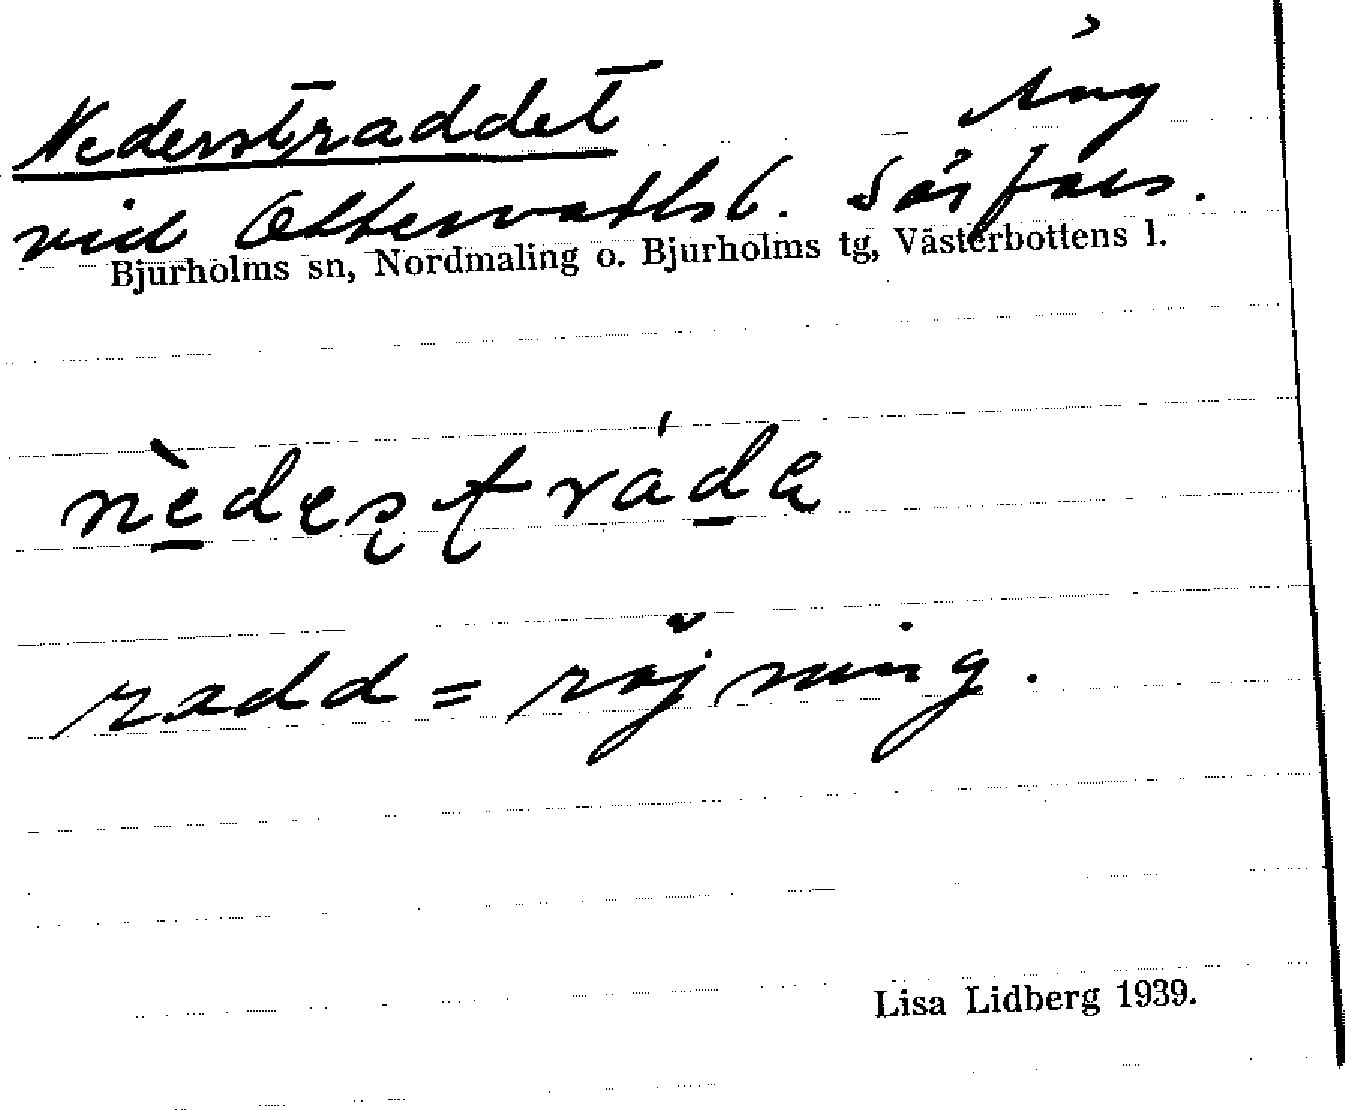 Nederstraddet äng
vid Ottervattsb. Sörfors.
Bjurholms sn, Nordmaling o. Bjurholms tg, Västerbottens l.
radd = röjning.
Lisa Lidberg 1939.